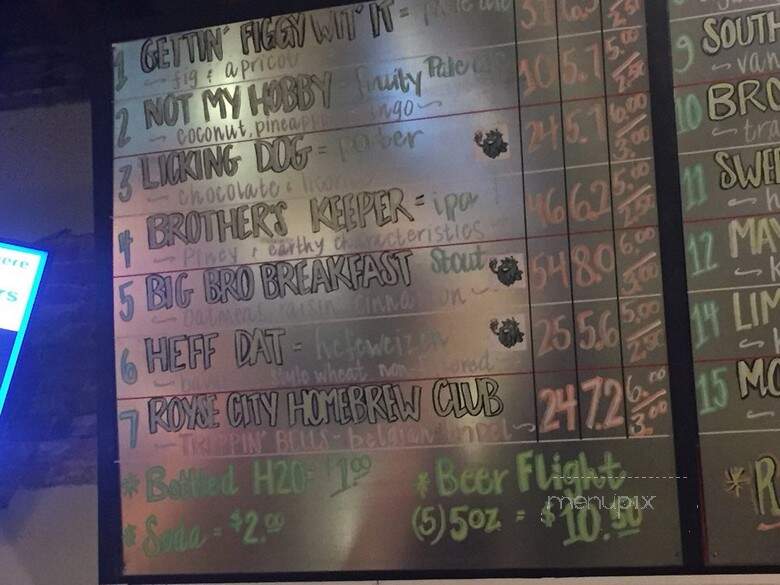 1 GETTIN' FIGGY WIT' IT = pale ale 5.00
fig & apricot
2 NOT MY HOBBY - fruity Pale 10 5.7 5.00
coconut, pineapple
3 LICKING DOG = porter 24 5.7 6.00 3.00
chocolate &
4 BROTHER'S KEEPER = ipa 46 6.2 5.00
Piney & earthy characteristics
5 BIG BRO BREAKFAST Stout 54 8.0 6.00 3.00
Oatmeal raisin cinnamon
6 HEFF DAT - hefeweizen 25 5.6 5.00 2.50
style wheat non
7 ROYSE CITY HOMEBREW CLUB 24 7.2 6.00 3.00
TRIPPIN' BELLS - belgian
* Bottled H2O = $1.00
* Soda = $2.00
* Beer Flight
(5) 5oz = $10.50
9 SOUTH
van
10 BRO
11 SWEE
12 MAY
14 LIM
15 MO
menupix